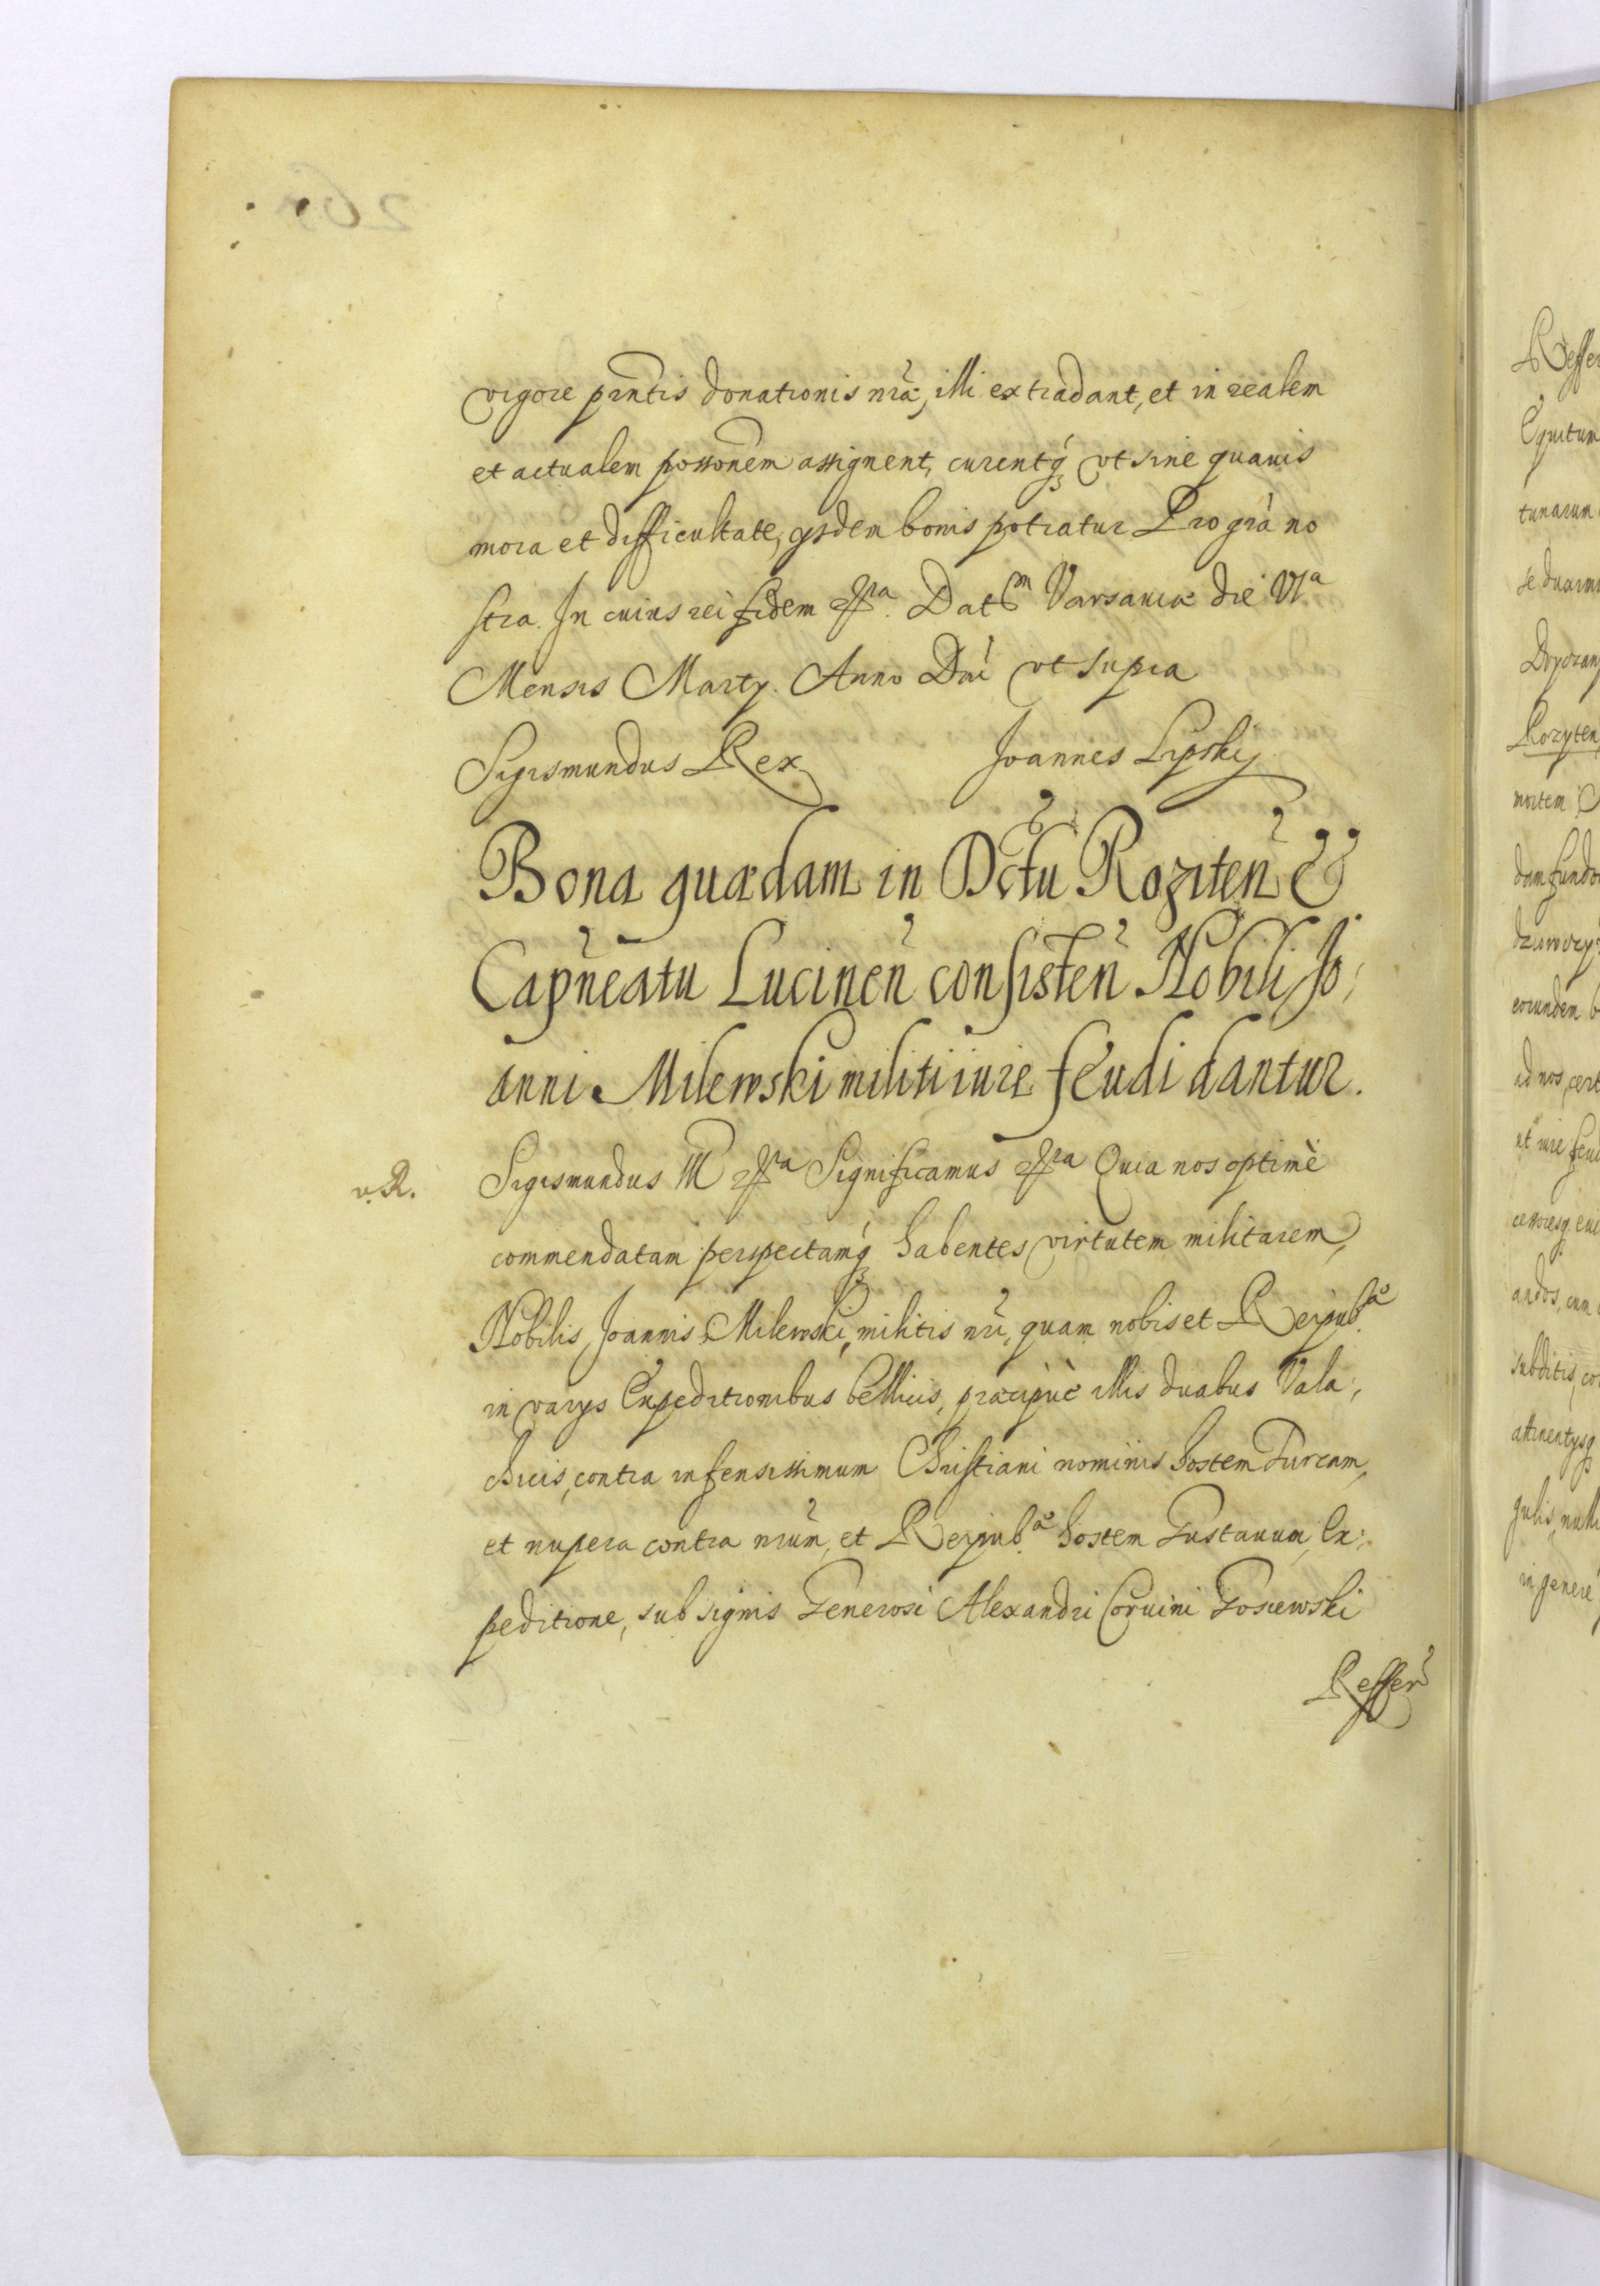 vigore pñtis donationis nrã, illi extradant, et in realem
et actualem possonẽm assignent, curentq́ʒ vt sine quavis
mora et difficultate, ysdem bonis potiatur Pro grã no
stra. In cuius rei fidem Datᵐ Varsaviæ die VIᵃ
Mensis Marty. Anno Dnĩ vt supra
Sigismundus Rex Joannes Lipsky
Bona quædam in Dctũ Roziteñ &
Capñeatu Lucineñ consisteñ Nobili Jo;
anni Milewski militi iure feudi dantur.
v. R.
Sigismundus III Significamus Quia nos optimè
commendatam perspectamq́ʒ habentes virtutem militarem,
Nobilis Joannis Milewski, militis nrĩ, quam nobis et Reipubᶜᵃᵉ
in varys Expeditionibus bellicis, præcipuè illis duabus Vala;
chicis, contra infensissimum Christiani nominis hostem Turcam,
et nupera contra nrũm, et Reipubᶜᵃᵉ hostem Gustavum, Ex;
peditione, sub signis Generosi Alexandri Corvini Gosiewski
Refferʳ
Reffer
Equitum
tanarum
se duarum
Rozyten
mortem
eorundem b
subditis, co
in genere